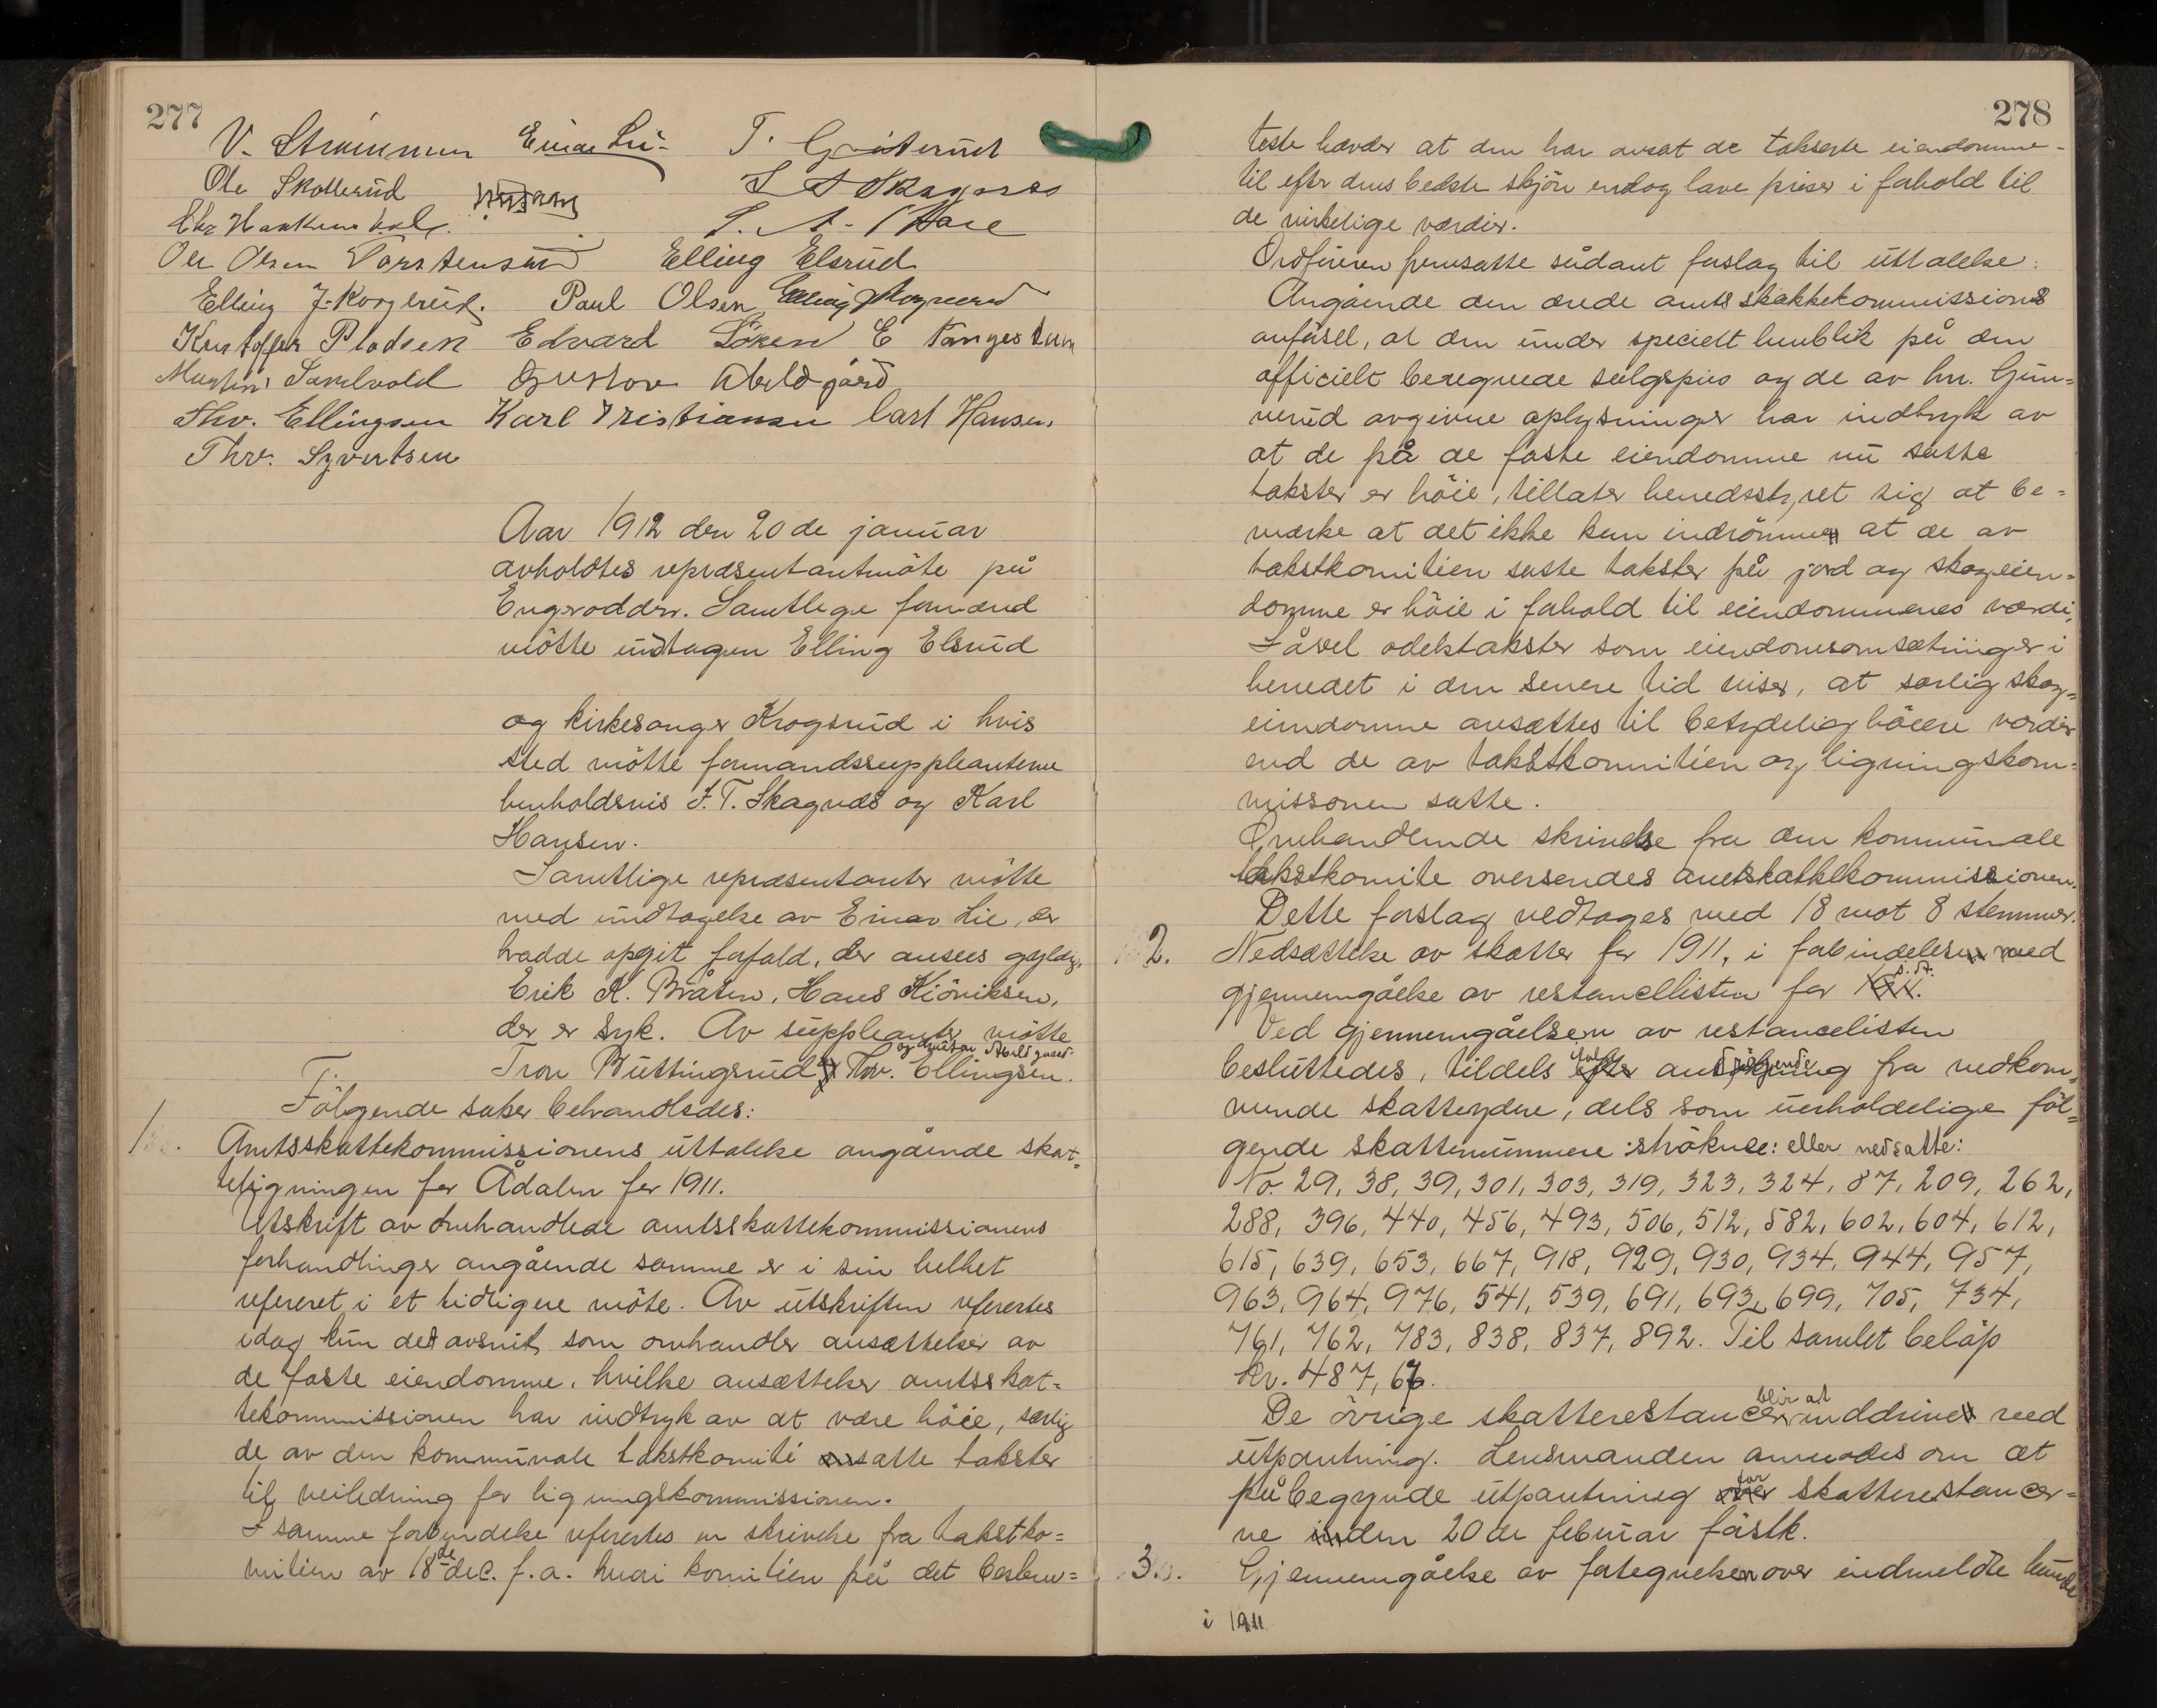 277
V. Strømmen Einar Lie T. Gråterud
Ole Skollerud
Ole Olsen Elling Elsrud
Elling J. Krogsrud. Paul Olsen
Kristoffer Pladsen Edvard Søken E
Martin Sandvold Gustav Abeldgård
Thv. Ellingsen Karl Kristiansen Carl Hansen.
Thv. Syvertsen
Aar 1912 den 20de januar
avholdtes repræsentantmöte på
Engeroddn. Samtlige formænd
mötte undtagen Elling Elsrud
og kirkesanger Krogsrud i hvis
sted mötte formandssuppleanterne
henholdsvis J. T. Skagnæs og Karl
Hansen.
Samtlige repræsentanter mötte
med undtagelse av Einar Lie, der
hadde opgit forfald, der ansees gyldig,
Erik K. Bråten, Hans Kiöniksen,
der er syk. Av suppleanter mötte
og Gustav Abeldgaard.
Tron Buttingsrud Thv. Ellingsen.
Fölgende saker behandledes:
1. Amtsskattekommissionens uttalelse angående skat=
teligningen for Ådalen for 1911.
Utskrift av omhandlede amtsskattekommissionens
forhandlinger angående samme er i sin helhet
referert i et tidligere möte. Av utskriften refertes
idag kun det avsnit, som omhandler ansættelser av
de faste eiendomme, hvilke ansættelser amtsskat=
tekommissionen har indtryk av at være höie, særlig
de av den kommunale takstkomité satte takster
til veiledning for ligningskommissionen.
I samme forbindelse refertes en skrivelse fra takstko=
miteen av 18de dec. f.a. hvori komitéen på det bestem=
278
teste hævder at den har ansat de takserte eiendomme
til efter dens bedste skjön endog lave priser i forhold til
de virkelige værdier.
Ordföreren fremsatte sådant forslag til uttalelse:
Angående den ærede amtsskattekommissions
anförsel, at den under specielt henblik på den
officielt beregnede salgspris og de av hr. Gun=
nerud avgivne oplysninger har indtryk av
at de på de faste eiendomme nu satte
takster er höie, tillater herredsstyret sig at be=
mærke at det ikke kan indrömmes at de av
takstkomitéen satte takster på jord og skogeien=
domme er höie i forhold til eiendommenes værdi.
Såvel odelstakster som eiendomsomsætninger i
herredet i den senere tid viser, at særlig skog=
eiendomme ansættes til betydelig höiere værdier
end de av takstkomitéen og ligningskom=
missonen satte.
Omhandlende skrivelse fra den kommunale
takstkomite oversendes amtskattekommissionen.
Dette forslag vedtages med 18 mot 8 stemmer.
2. Nedsættelse av skatter for 1911, i forbindelse med
gjennemgåelse av restancelisten for s. å.
Ved gjennemgåelsen av restancelisten
besluttedes, tildels ansökning fra vedkom=
mende skatteydere, dels som uerholdelige föl=
gende skattenummere strökne: eller nedsatte:
No. 29, 38, 39, 301, 303, 319, 323, 324, 87, 209, 262,
288, 396, 440, 456, 493, 506, 512, 582, 602, 604, 612,
615, 639, 653, 667, 918, 929, 930, 934, 944, 957,
963, 964, 976, 541, 539, 691, 693, 699, 705, 734,
761, 762, 783, 838, 837, 892. Til samlet belöp
Kr. 487,67.
De övrige skatterestancer blir at inddrive ved
utpantning. Lensmanden anmodes om at
påbegynde utpantning for skatterestancer=
ne inden 20de februar förstk.
3. Gjennemgåelse av fortegnelsen over indmeldte hunde
i 1911